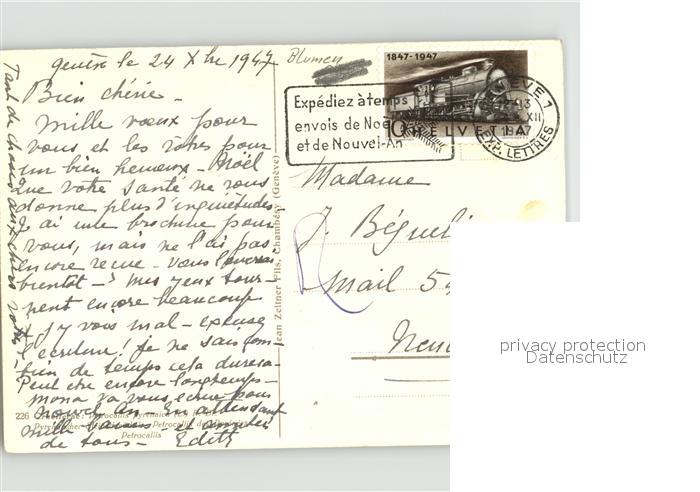 genève le 24 Xbre 1947
Blumen
Bien chérie -
Mille vœux pour
vous et les vôtres pour
un bien heureux - Noël
Que votre santé ne vous
donne plus d'inquiétudes
J'ai une brochure pour
vous, mais ne l'ai pas
encore reçue - vous l'aurez
bientôt - ? Mes yeux sour-
encore beaucoup
j'y vois mal - excusez
l'écriture! je ne sais com
bien de temps cela durera
Peut être encore longtemps -
Mona va vous écrire pour
nouvel An - En attendant
mille baisers - et amitiés
de tous - Edith
Tant de choses aux chers vôtres
1847-1947
10 HELVETIA
GENÈVE 1
XII
1947
EXP. LETTRES
Expédiez à temps
envois de Noël
et de Nouvel-An
Madame
J. Béguelin
Mail 5
Neu
Jean Zeltner Fils, Chambésy (Genève)
226
Petrocallis
privacy protection
Datenschutz